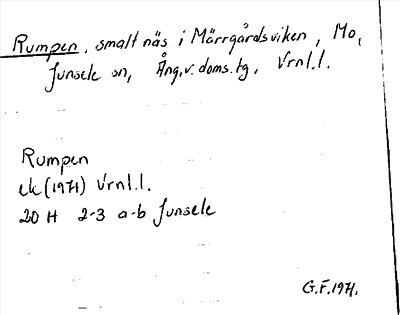 Rumpen, smalt näs i Märrgårdsviken, Mo,
Junsele sn, Ång.v. doms. tg, Vrnl.l.
Rumpen
ek (1971) Vrnl.l.
20 H 2-3 a-b Junsele
G.F. 1971.